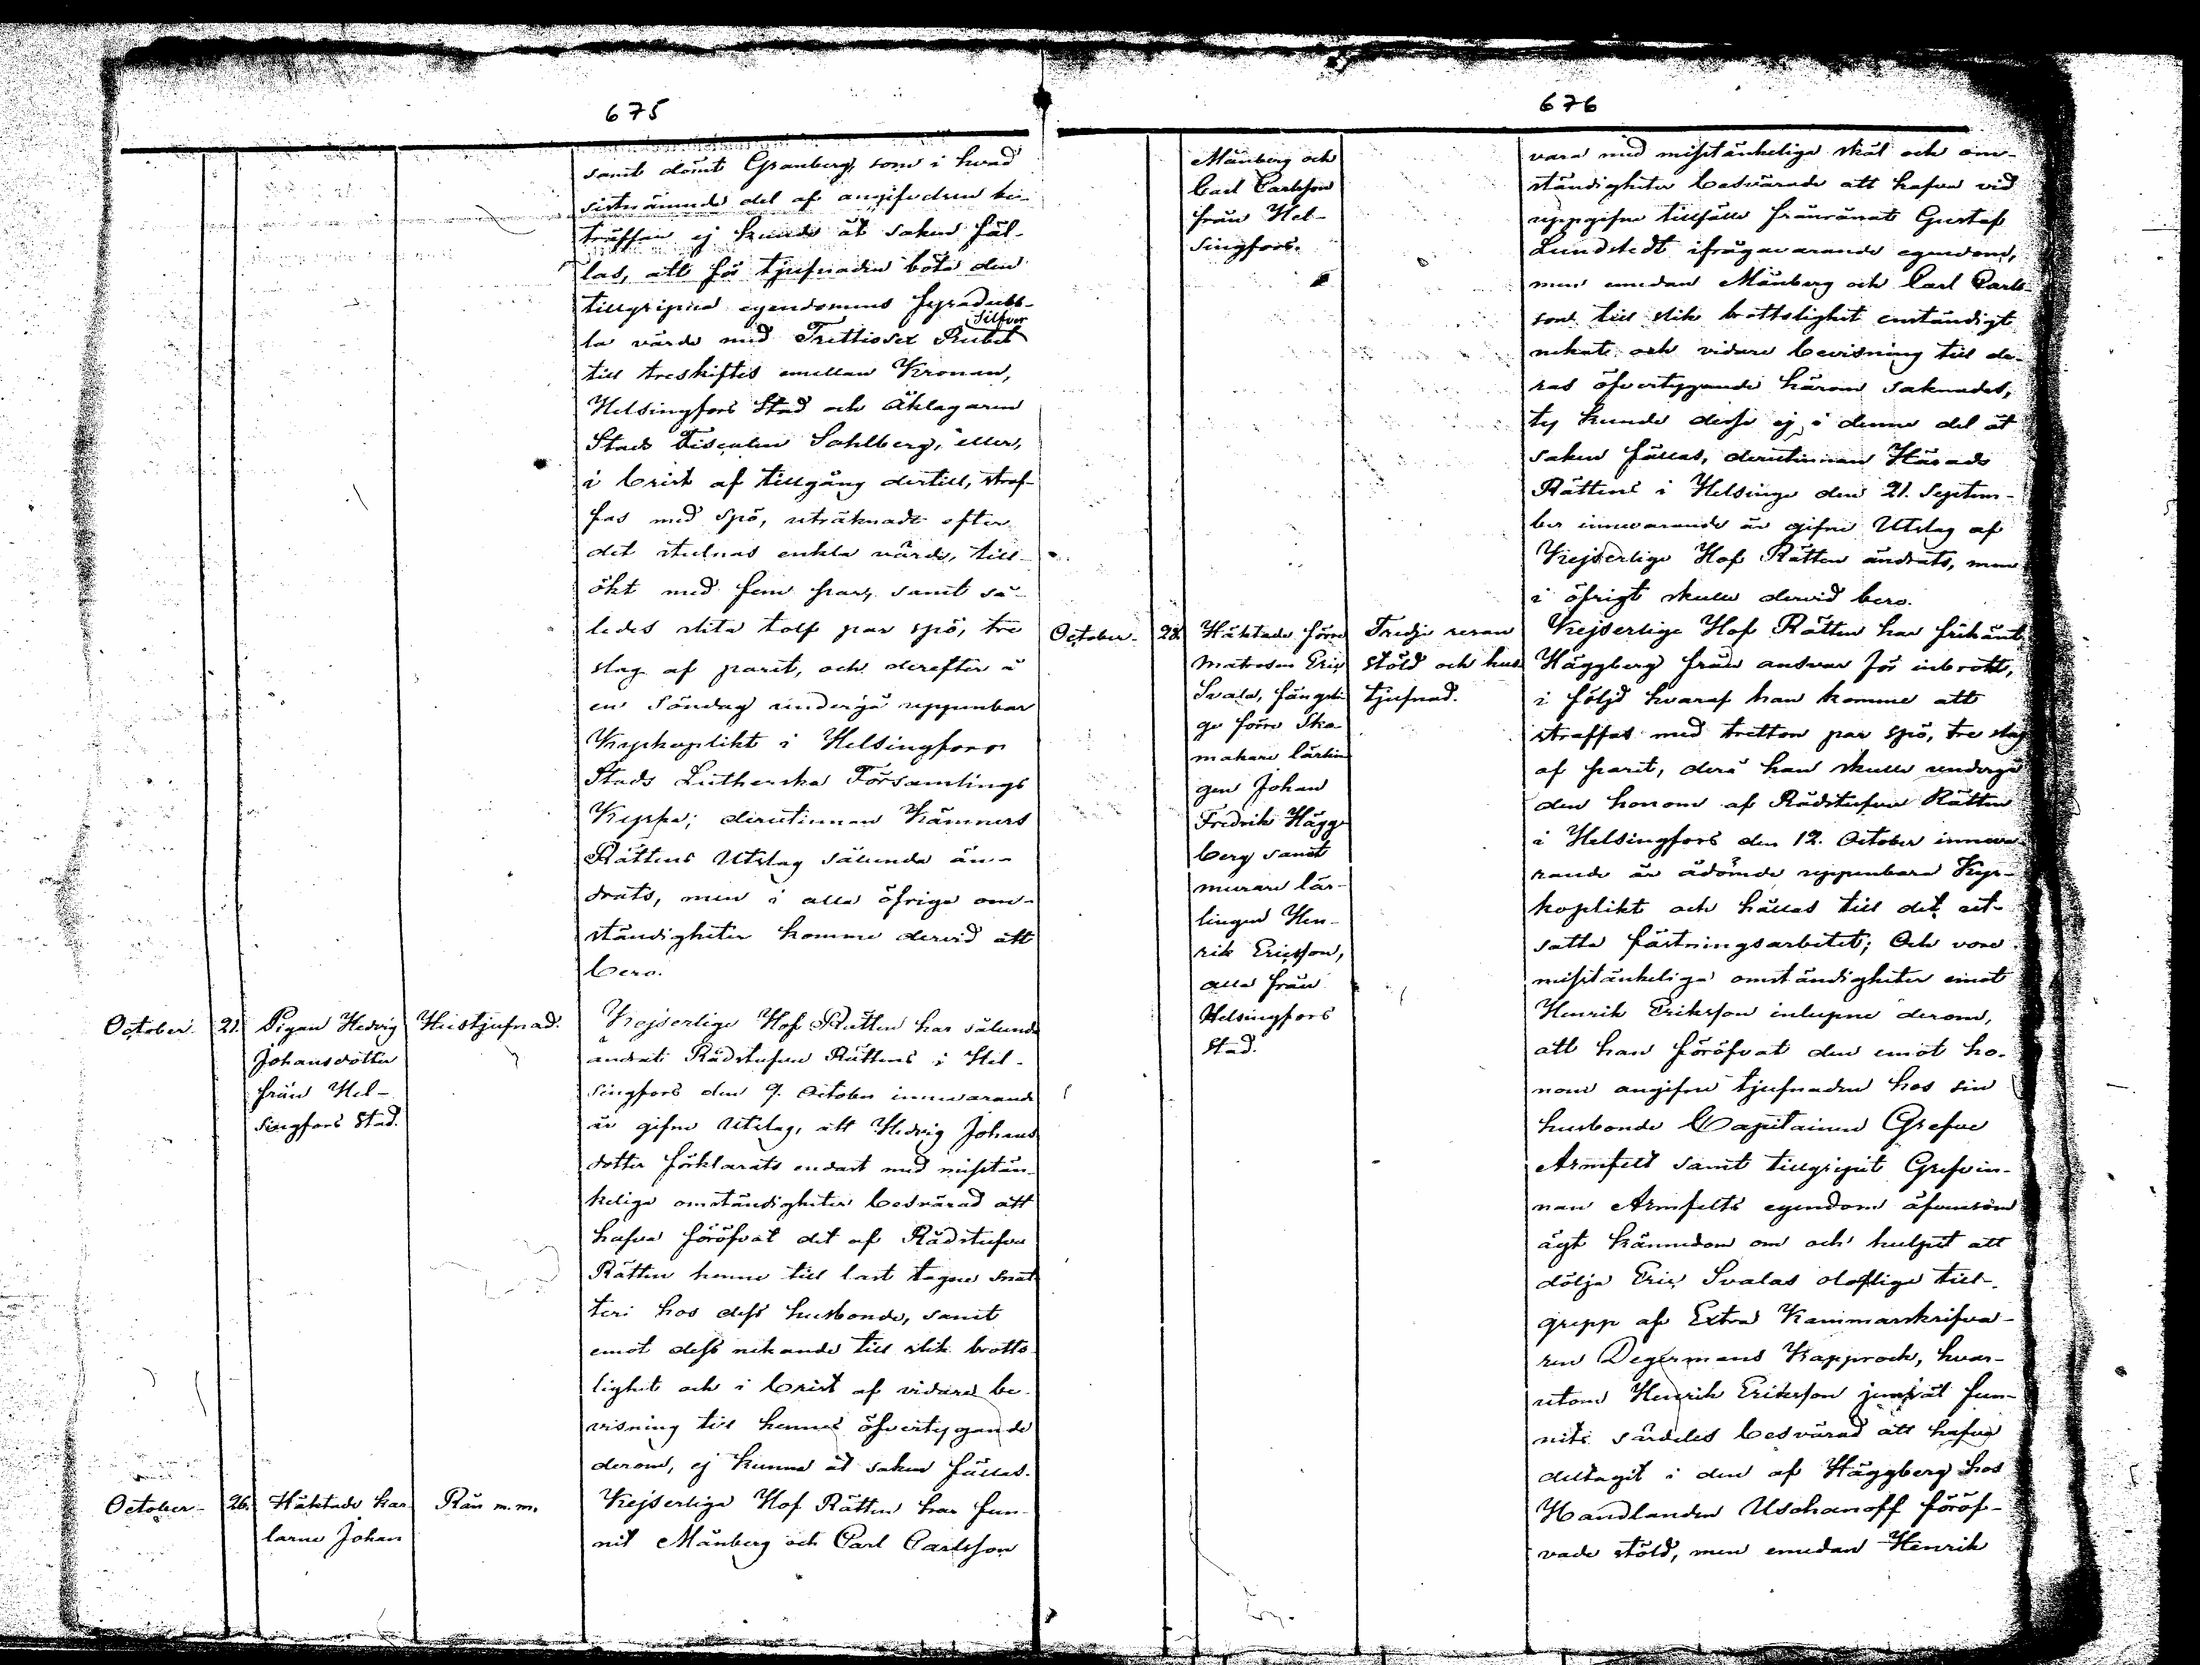 675
samt dömt Granberg, som i hvad
sistnämnde del af angifvelsen be-
träffar ej kunde åt saken fäl-
las, att för tjufnaden böta den
tillgripna egendomens fyradubb-
la värde med Trettiosex Rubel Silfver
till treskiftes emellan Kronan,
Helsingfors Stad och Åklagaren
Stads Fiscalen Sahlberg, eller,
i brist af tillgång dertill, straf-
fas med spö, uträknadt efter
det stulnas enkla värde, till-
ökt med fem par, samt så-
ledes slita tolf par spö, tre
slag af parit, och derefter å
en Söndag undergå uppenbar
Kyrkoplikt i Helsingfors
Stads Lutherska Församlings
Kyrka; derutinnan Kämners
Rättens Utslag sålunda än-
drats, men i alla öfriga om-
ständigheter komme dervid att
bero.
October. 21. Pigan Hedvig
Johansdotter
från Hel-
singfors Stad.
Hustjufnad.
Kejserliga Hof Rätten har sålunda
ändrat Rådstufvu Rättens i Hel-
singfors den 9. October innevarande
år gifne Utslag, att Hedvig Johans
dotter förklarats endast med misstän-
keliga omständigheter besvärad att
hafva föröfvat det af Rådstufvu
Rätten henne till last tagne snat
teri hos dess husbonde, samt
emot dess nekande till slik brotts-
lighet och i brist af vidare be-
visning till hennes öfvertygande
derom, ej kunna åt saken fällas.
October- 26. Häktade kar
larne Johan
Rån m.m.
Kejserliga Hof Rätten har fun-
nit Månberg och Carl Carlsson
676
Månberg och
Carl Carlsson
från Hel-
singfors.
vara med misstänkeliga skäl och om-
ständigheter besvärade att hafva vid
uppgifne tillfälle frånrånat Gustaf
Lundstedt ifrågavarande egendom,
men emedan Månberg och Carl Carls-
son till slik brottslighet enständigt
nekat och vidare bevisning till de-
ras öfvertygande härom saknades,
ty kunde desse ej i denne del åt
saken fällas, derutinnan Härads
Rättens i Helsinge den 21. Septem-
ber innevarande år gifne Utslag af
Kejserliga Hof Rätten ändrats, men
i öfrigt skulle dervid bero.
October- 28. Häktade förre
Matrosen Eric
Svala, fängsli-
ge förre Sko-
makare lärlin
gen Johan
Fredrik Hägg-
berg samt
murare lär-
lingen Hen-
rik Ericsson,
alla från
Helsingfors
Stad.
Tredje resan
stöld och hus
tjufnad.
Kejserliga Hof Rätten har frikänt
Häggberg från ansvar för inbrott,
i följd hvaraf han komme att
straffas med tretton par spö, tre slag
af parit, derå han skulle undergå
den honom af Rådstufvu Rätten
i Helsingfors den 12. October inneva-
rande år ådömde uppenbara Kyr-
koplikt och hållas till det ut-
satta fästningsarbetet; Och vore
misstänkeliga omständigheter emot
Henrik Eriksson inlupne derom,
att han föröfvat den emot ho-
nom angifne tjufnaden hos sin
husbonde Capitainen Grefve
Armfelt samt tillgripit Grefvin-
nan Armfelts egendom äfvensom
ägt kännedom om och hulpit att
dölja Eric Svalas olofliga till-
grepp af Extra Kammarskrifva-
ren Degermans Kapprock, hvar-
utom Henrik Eriksson jemväl fun-
nits särdeles besvärad att hafva
deltagit i den af Häggberg hos
Handlanden Uschanoff föröf-
vade stöld, men emedan Henrik